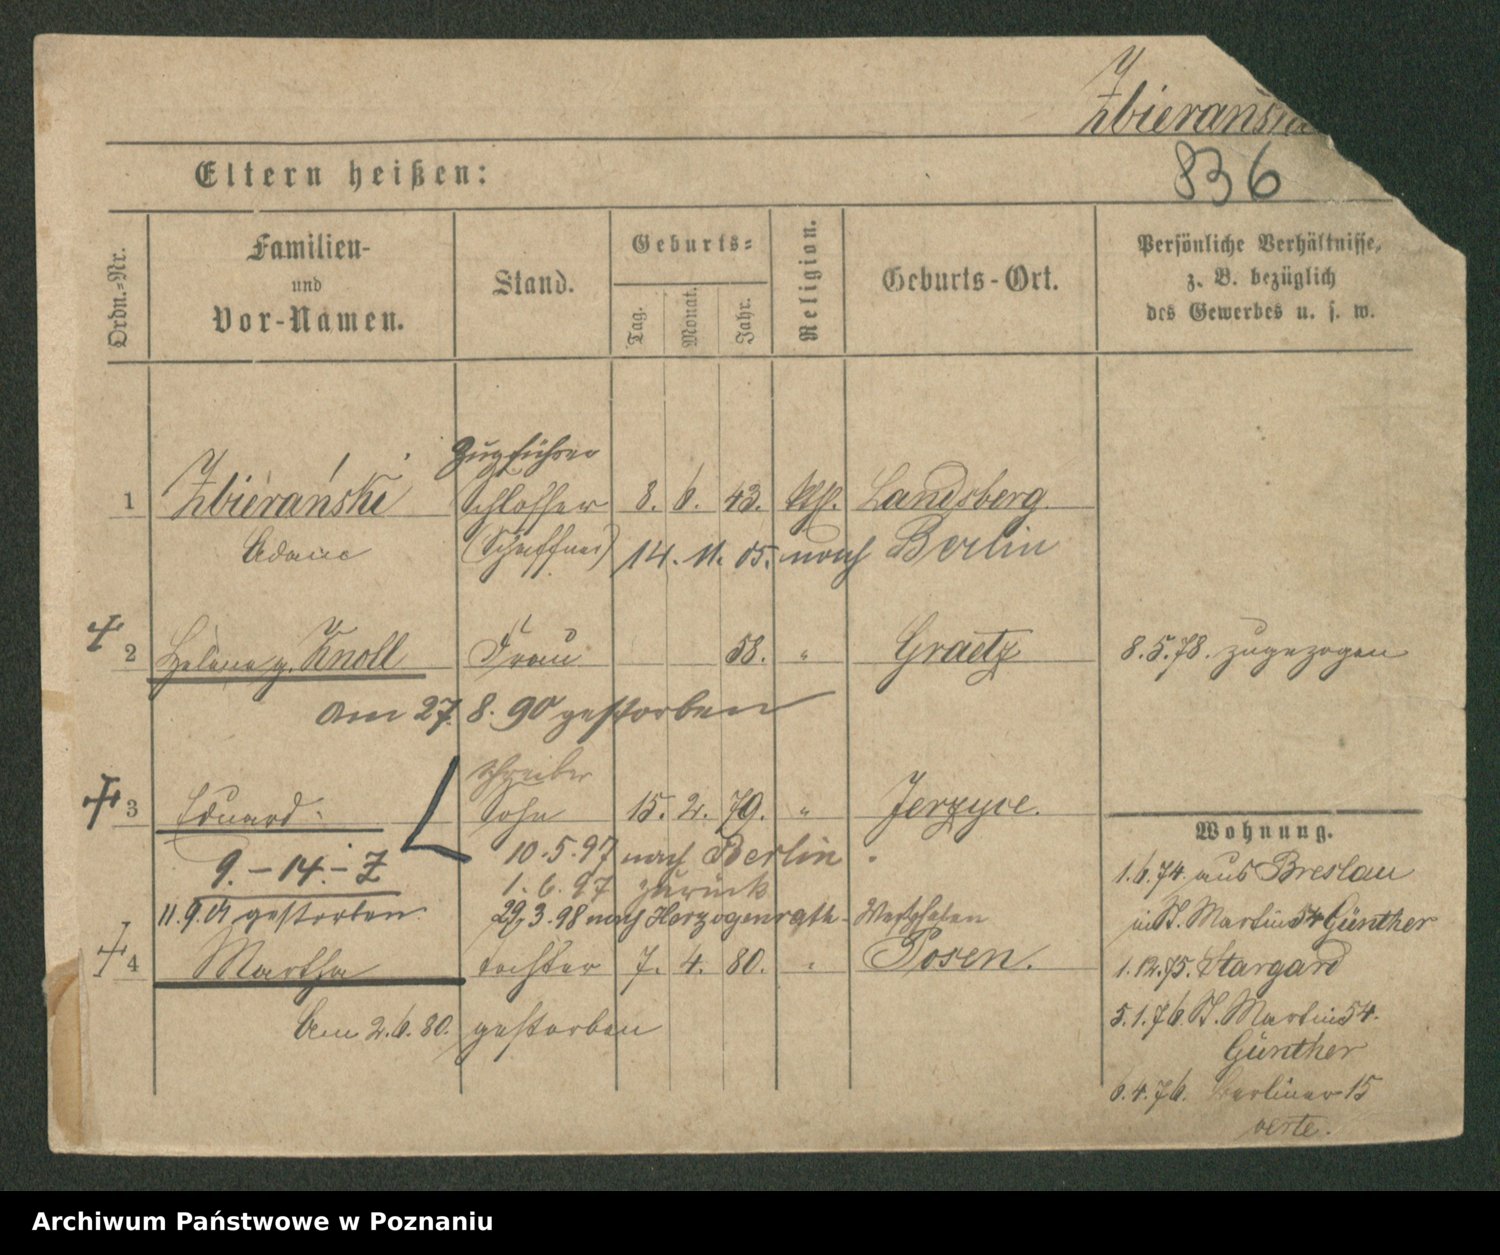 Zbierański
836
Eltern heißen:
Ordn.-Nr.
Familien-
und
Vor-Namen.
Stand.
Geburts-
Tag.
Monat.
Jahr.
Religion.
Geburts-Ort.
Persönliche Verhältnisse,
z. B. bezüglich
des Gewerbes u. s. w.
Zugführer
1 Zbierański Schlosser 8. 6. 43. kth. Landsberg
Adam (Schaffner) 14. 11. 05. nach Berlin
2 Helena g. Knoll Frau 58. " Graetz 8.5.78. zugezogen
am 27. 8. 90 gestorben
Schreiber
3 Eduard Sohn 15. 2. 79. " Jerzyce.
10.5.97 nach Berlin
9.-14.-Z 1. 6. 97 zurück
11.9.01 gestorben. 29.3.98 nach Herzogenrath - Westfalen
4 Martha Tochter 7. 4. 80. " Posen.
Am 2.6.80. gestorben
Wohnung.
1.6.74. aus Breslau
in St. Martin 54 Günther
1.12.75. Stargard
5.1.76. St. Martin 54.
Günther
6.4.76. Berliner 15